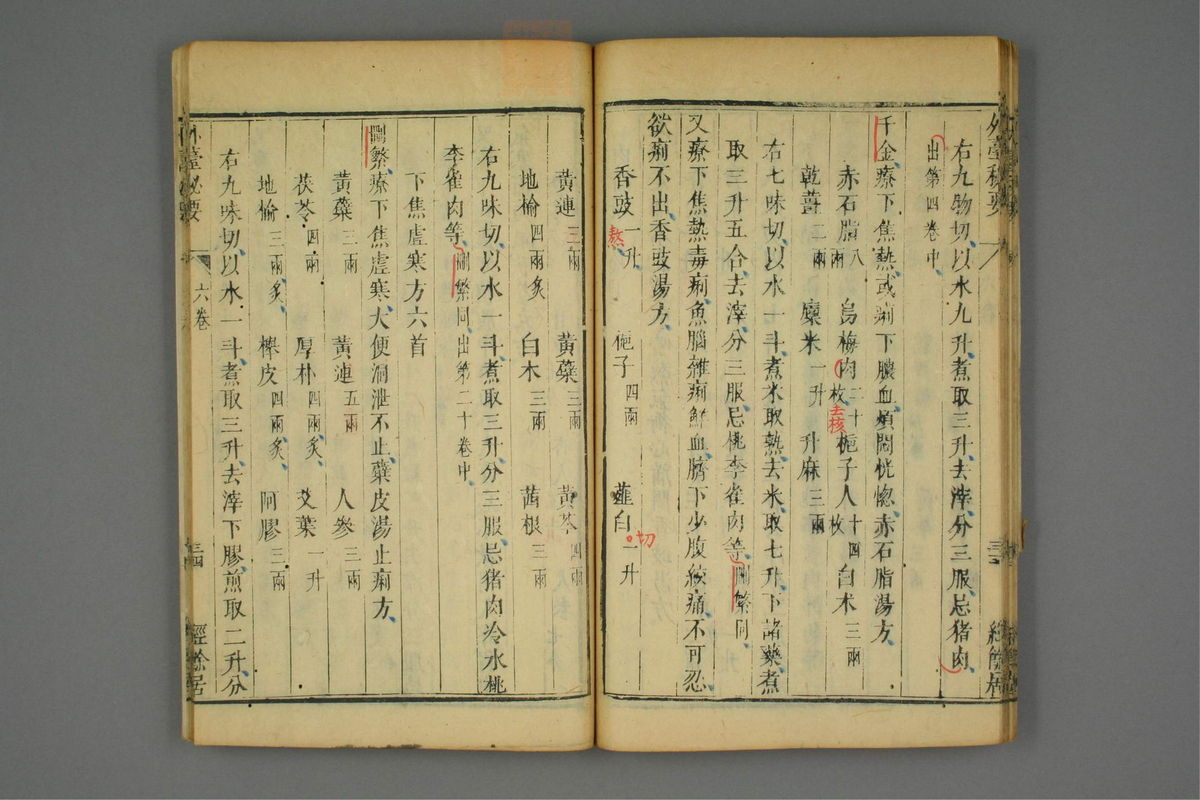 右九物切以水九升煮取三升去滓分三服忌猪肉
出第四卷中
千金療下焦熱或痢下膿血煩悶恍惚赤石脂湯方
赤石脂八兩 烏梅肉二十枚去核 梔子人十四枚 白术三兩
乾薑二兩 糜米一升 升麻三兩
右七味切以水一斗煮米取熟去米取七升下諸藥煮
取三升五合去滓分三服忌桃李雀肉等刪繁同
又療下焦熱毒痢魚腦雜痢鮮血臍下少腹絞痛不可忍
欲痢不出香豉湯方
香豉一升熬 梔子四兩 薤白一升切
黃連三兩 黃蘗三兩 黃芩四兩
地榆四兩炙 白木三兩 茜根三兩
右九味切以水一斗煮取三升分三服忌猪肉冷水桃
李雀肉等刪繁同出第二十卷中
下焦虛寒方六首
刪繁療下焦虛寒大便洞泄不止蘗皮湯止痢方
黃蘗三兩 黃連五兩 人參三兩
茯苓四兩 厚朴四兩炙 艾葉一升
地榆三兩炙 櫸皮四兩炙 阿膠三兩
右九味切以水一斗煮取三升去滓下膠煎取二升分
外臺祕要 六卷 三四 經餘居